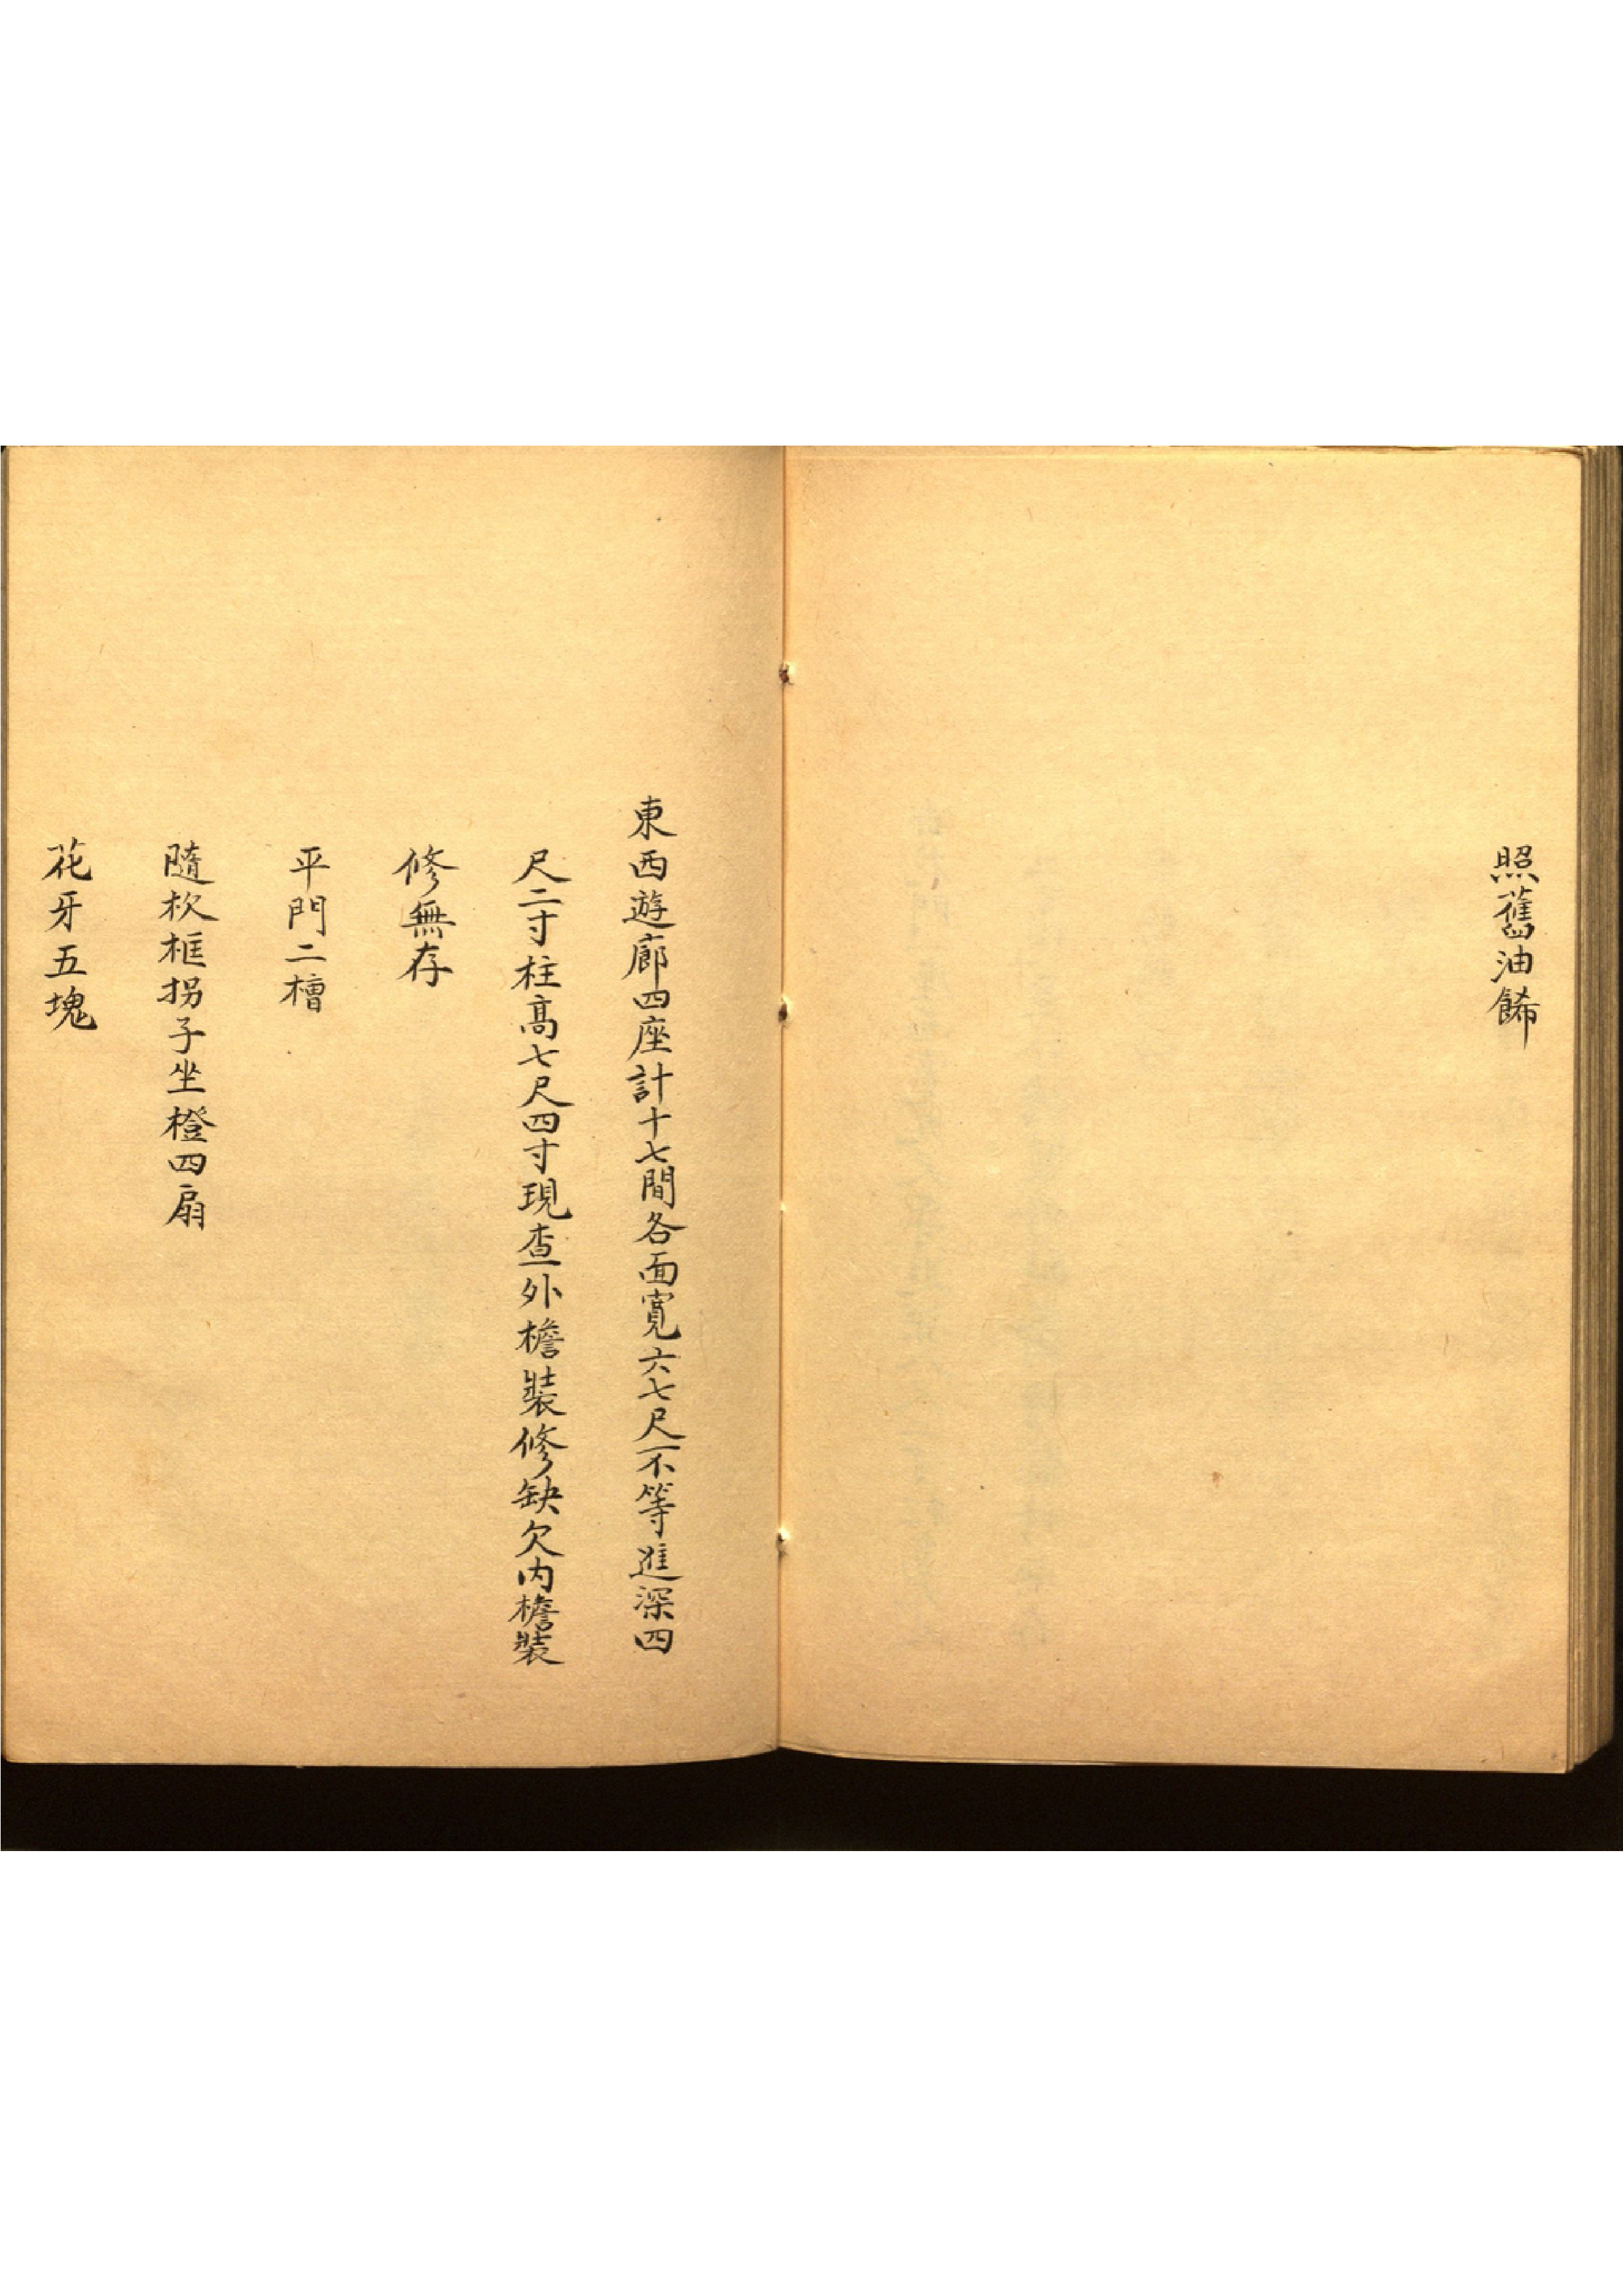 照舊油餙
東西遊廊四座計十七間各面寬六七尺不等進深四
尺二寸柱高七尺四寸現查外檐裝修缺欠内檐裝
修無存
平門二槽
隨枕框拐子坐橙四扇
花牙五塊